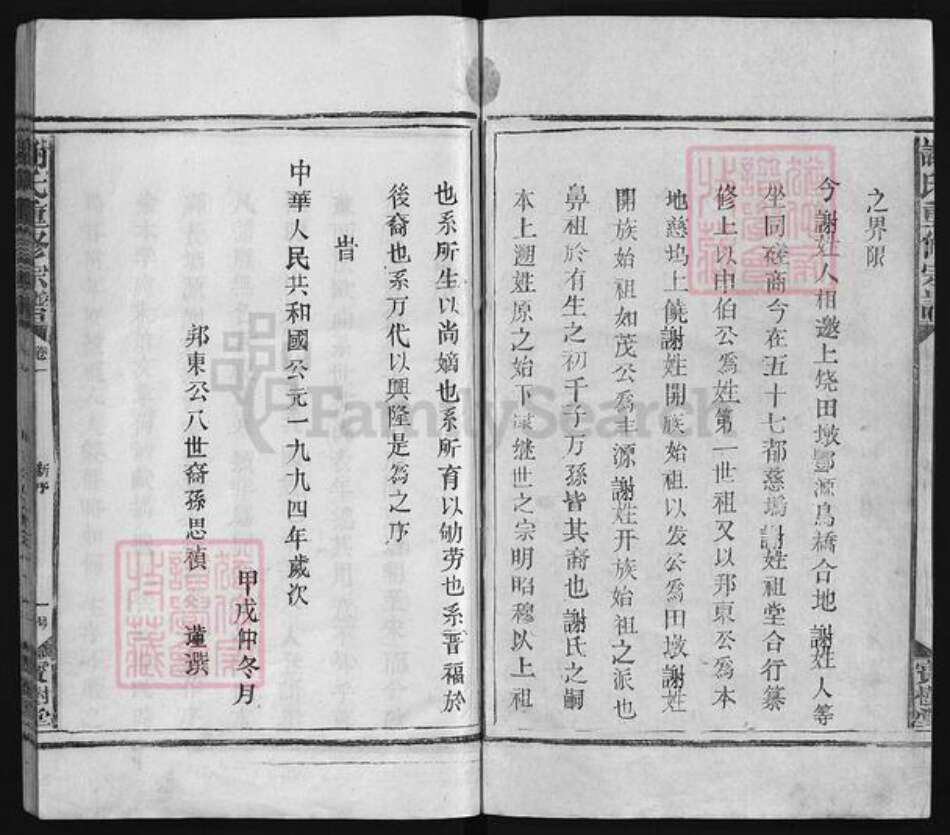 之界限
今謝姓人相邀上烧田墩酆源鳥橋合地謝姓人等
坐同磋商今在五十七都慈塢謝姓祖堂合行纂
修上以申伯公爲姓第一世祖又以邦東公爲本
地慈坞上饒謝姓開族始祖以发公爲田墩謝姓
開族始祖如茂公爲丰源謝姓开族始祖之派也
鼻祖於有生之初千子万孫皆其裔也謝氏之嗣
本上溯姓原之始下肃继世之宗明昭穆以上祖
也系所生以尚嫡也系所育以劬劳也系晋福於
後裔也系万代以興隆是爲之序
旹
中華人民共和國公元一九九四年歲次
甲戌仲冬月
邦東公八世裔孫思禎 谨撰
謝氏重修宗譜
卷一
新序
一號
寳樹堂
謝氏重修宗譜
寳樹堂
FamilySearch